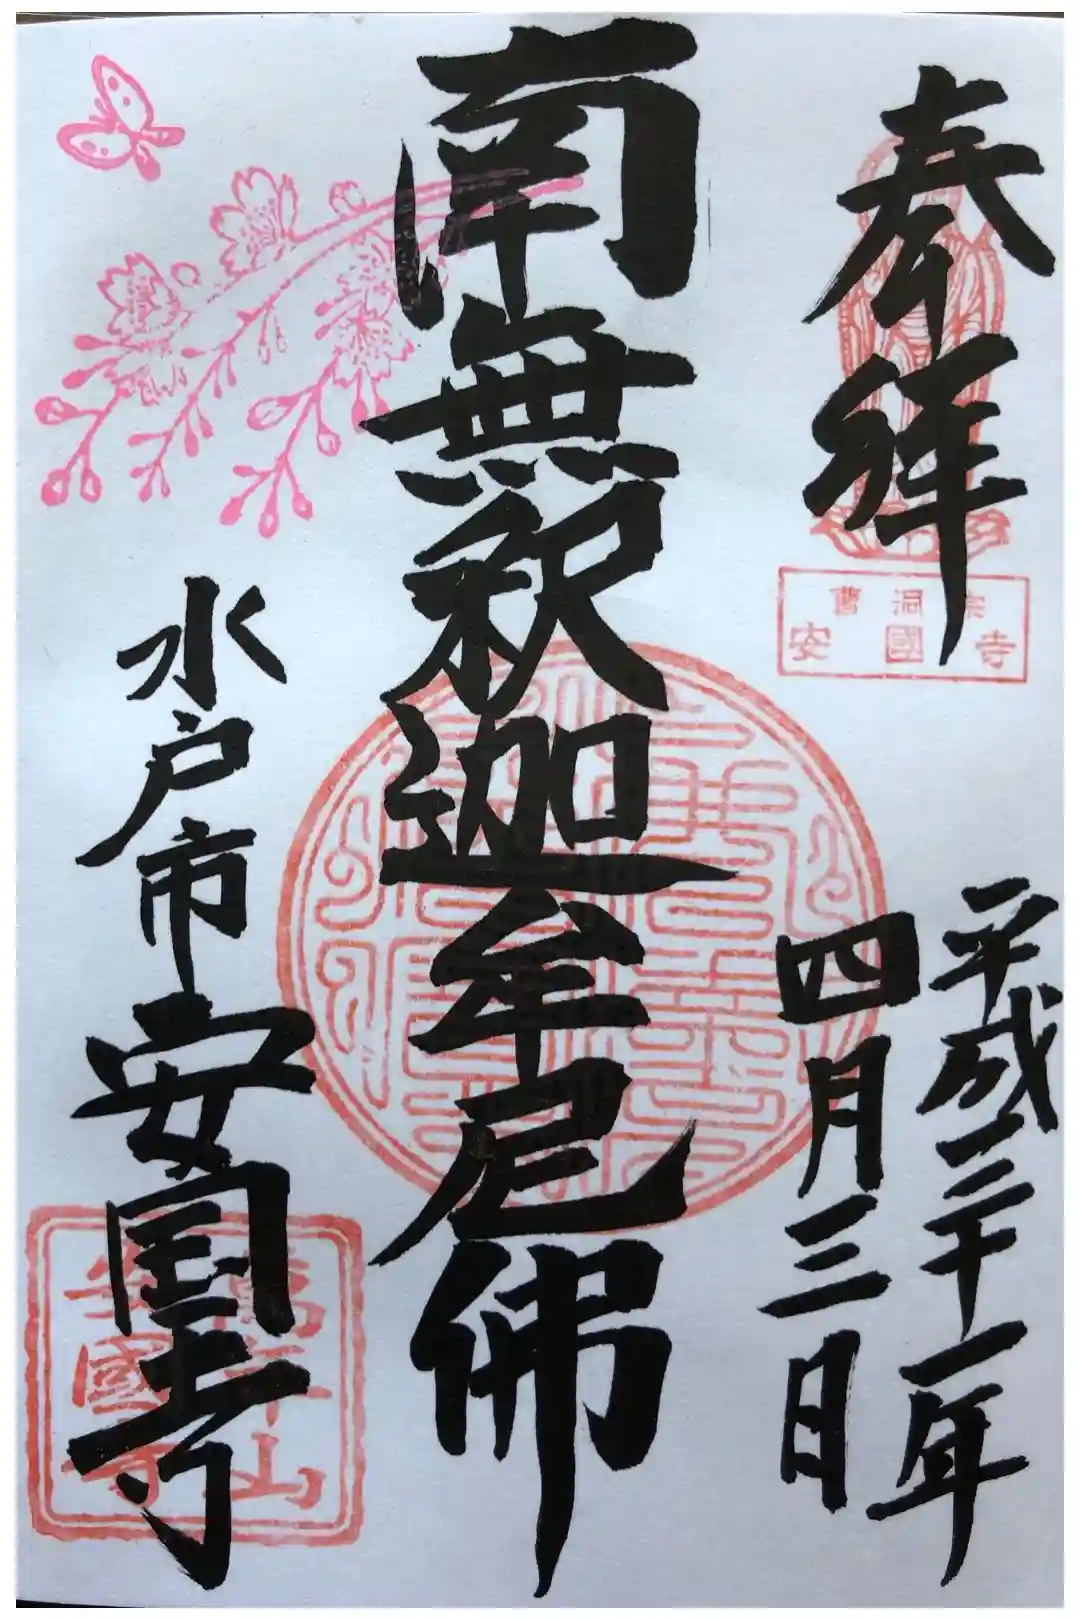 奉拝
曹洞宗
安國寺
平成三十一年
四月三日
南無釈迦牟尼佛
水戸市安国寺